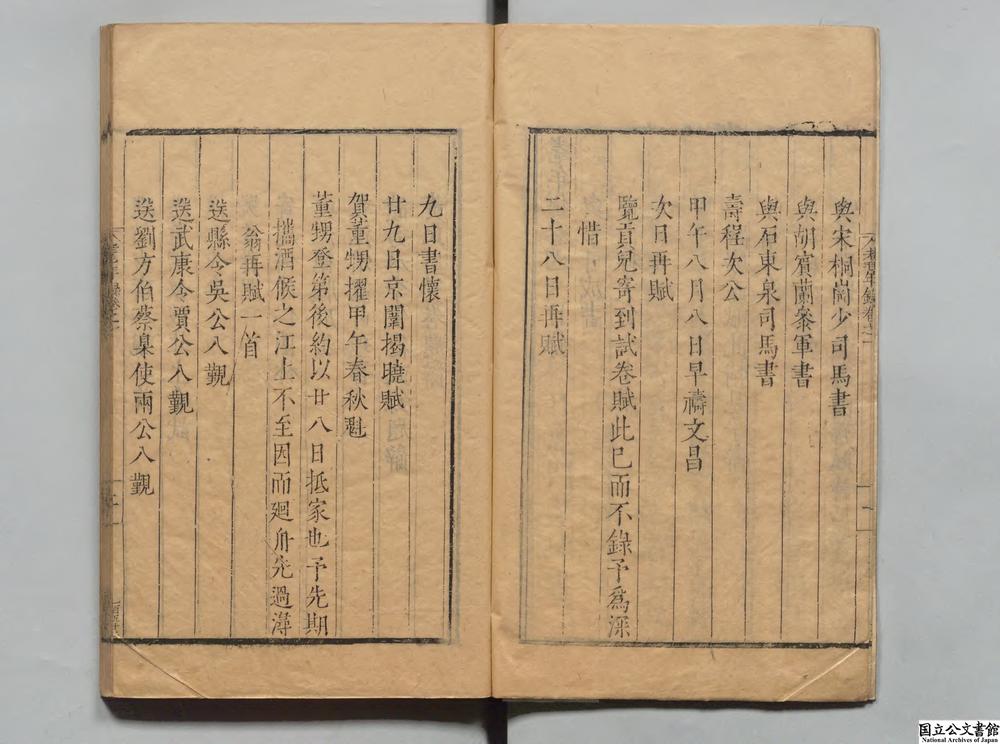 與宋桐崗少司馬書
與胡賓蘭參軍書
與石東泉司馬書
壽程次公
甲午八月八日早禱文昌
次日再賦
覽貢兒寄到試卷賦此已而不錄予爲深
惜
二十八日再賦
九日書懷
廿九日京闈揭曉賦
賀董甥擢甲午春秋魁
董甥登第後約以廿八日抵家也予先期
攜酒候之江上不至因而廻舟先過潯
翁再賦一首
送縣令吳公入覲
送武康令賈公入覲
送劉方伯蔡臬使兩公入覲
国立公文書館
National Archives of Japan